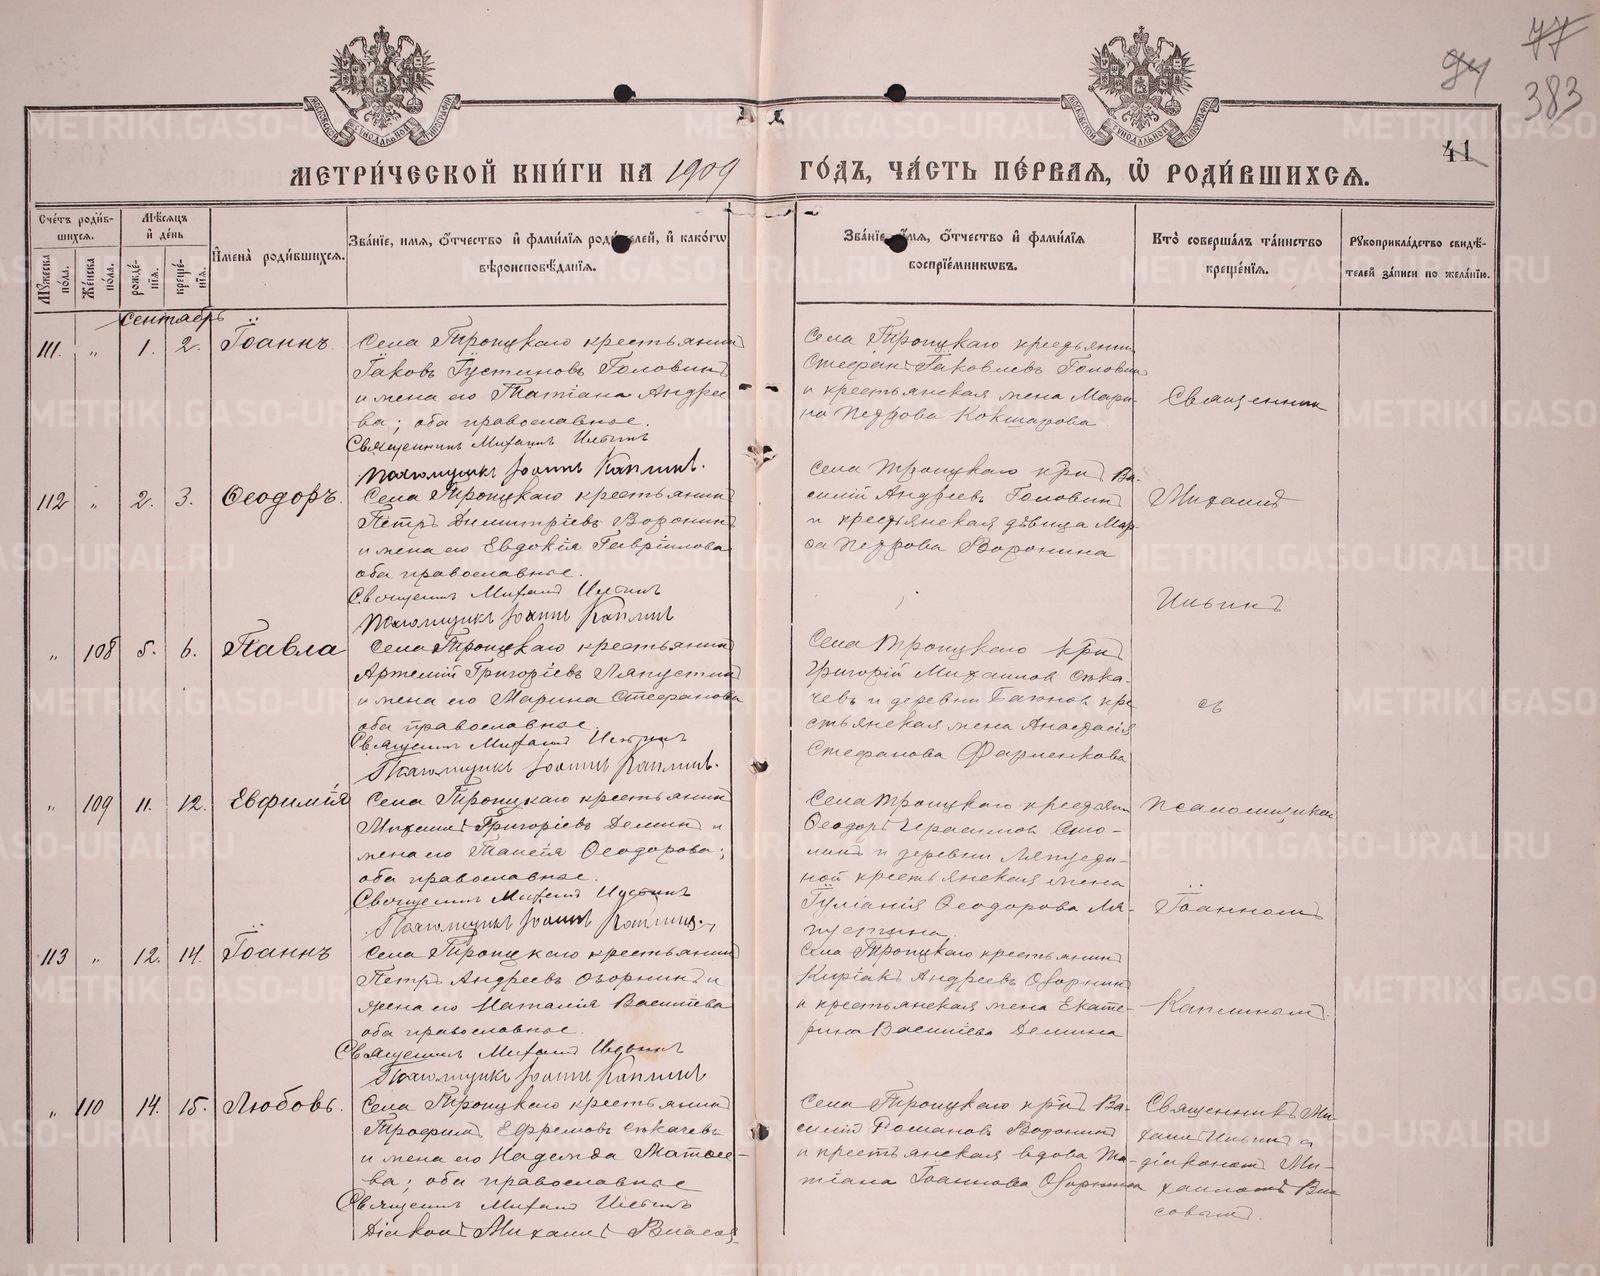 77
94
383
41
МЕТРИ́ЧЕСКОЙ КНИ́ГИ НА 1909 ГО́ДЪ, ЧА́СТЬ ПЕ́РВАЯ, Ѽ РОДИ́ВШИХСЯ.
Сче́тъ роди́в-
шихся.
Мѣ́сяцъ
и҆ де́нь
Му́жеска по́ла.
Же́нска по́ла.
рожде́-
нїя.
креще́-
нїя.
И҆мена̀ роди́вшихся.
Зва́нїе, имя, о҆́тчество и҆ фами́лїя роди́телей, и҆ како́гѡ
вѣроисповѣ́данїя.
Зва́нїе, и҆́мя, о҆́тчество и҆ фами́лїя
воспрїе́мникѡвъ.
Кто̀ соверша́лъ та́инство
креще́нїя.
Рукоприкла́дство свидѣ́-
телей за́писи по жела́нїю.
Сентябрь
111. „ 1. 2. Іоаннъ
Села Троицкаго крестьянинъ
Іаковъ Іустиновъ Головинъ
и жена его Татіана Андрее
ва; оба православное.
Священникъ Михаилъ Ильинъ
Псаломщикъ Іоаннъ Каплинъ.
Села Троицкаго крестьянин
Стефанъ Іаковлевъ Головин
и крестьянская жена Мари-
на Петрова Кокшарова.
Священник
112 „ 2. 3. Ѳеодоръ.
Села Троицкаго крестьянинъ
Петръ Димитріевъ Воронинъ
и жена его Евдокія Гавріилова
оба православное.
Священникъ Михаилъ Ильинъ
Псаломщикъ Іоаннъ Каплинъ
Села Троицкаго кр̃нъ Ва-
силій Андреевъ Головинъ
и крестьянская дѣвица Мар
ѳа Петрова Воронина
Михаилъ
Ильинъ
„ 108 5. 6. Павла
Села Троицкаго крестьянинъ
Артемій Григоріевъ Ляпустинъ
и жена его Марина Стефанова
оба православное.
Священникъ Михаилъ Ильинъ
Псаломщикъ Іоаннъ Каплинъ.
Села Троицкаго кр̃нъ
Григорій Михаиловъ Сѣка-
чевъ и деревни кре
стьянская жена Анастасія
Стефанова Фарленкова
съ
„ 109 11. 12. Евфимія
Села Троицкаго крестьянинъ
Михаилъ Григоріевъ Деминъ и
жена его Таисія Ѳеодорова;
оба православное.
Священникъ Михаилъ Ильинъ
Псаломщикъ Іоаннъ Каплинъ.
Села Троицкаго крестьян
Ѳеодоръ Герасимовъ
и деревни Ляпусти-
ной крестьянская жена
Іуліанія Ѳеодорова Ля-
пустина.
псаломщиком
Іоанномъ
113 „ 12. 14. Іоаннъ
Села Троицкаго крестьянинъ
Петръ Андреевъ Озорнинъ и
жена его Наталія Василіева
оба православное.
Священникъ Михаилъ Ильинъ
Псаломщикъ Іоаннъ Каплинъ
Села Троицкаго крестьянинъ
Киріакъ Андреевъ Озорнинъ
и крестьянская жена Екате-
рина Василіева Демина
Каплиномъ.
„ 110 14. 15. Любовь.
Села Троицкаго крестьянинъ
Трофимъ Ефремовъ Сѣкачевъ
и жена его Надежда Матѳее-
ва; оба православное
Священникъ Михаилъ Ильинъ
Діаконъ Михаилъ
Села Троицкаго кр̃нъ Ва-
силій Романовъ Воронинъ
и крестьянская вдова Та-
тіана Іоаннова Озорнина
Священникъ Ми-
хаилъ Ильинъ с
діакономъ Ми-
хаиломъ Вла
совымъ.
METRIKI.GASO-URAL.RU